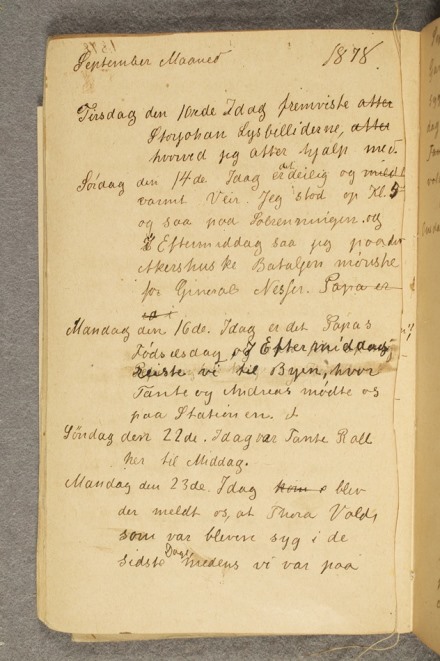 September Maaned 1878.
Tirsdag den 10nde Idag fremviste atter
Storjohan Lysbillederne, atter
hvorved jeg atter hjalp med
Lørdag den 14de. Idag er det deilig og mildt
varmt Veir. Jeg stod op Kl. 5
og saa paa Solrenningen. og
Eftermiddag saa jeg paa den
Akershuske Bataljon mønstre
for General Nesser. Papa er
Mandag den 16de. Idag er det Papas
Fødselsdag og I Eftermiddag
Reiste vi til Byen, hvor
Tante og Andreas mødte os
paa Stationen.
Søndag den 22de. Idag var Tante Roll
her til Middag.
Mandag den 23de. Idag blev
der meldt os, at Thora
som var bleven syg i de
sidste Dage medens vi var paa